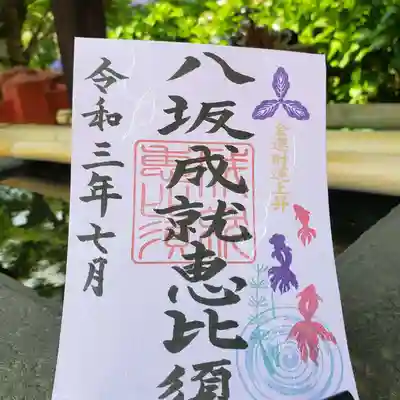 金運財運上昇
八坂成就恵比須
令和三年七月